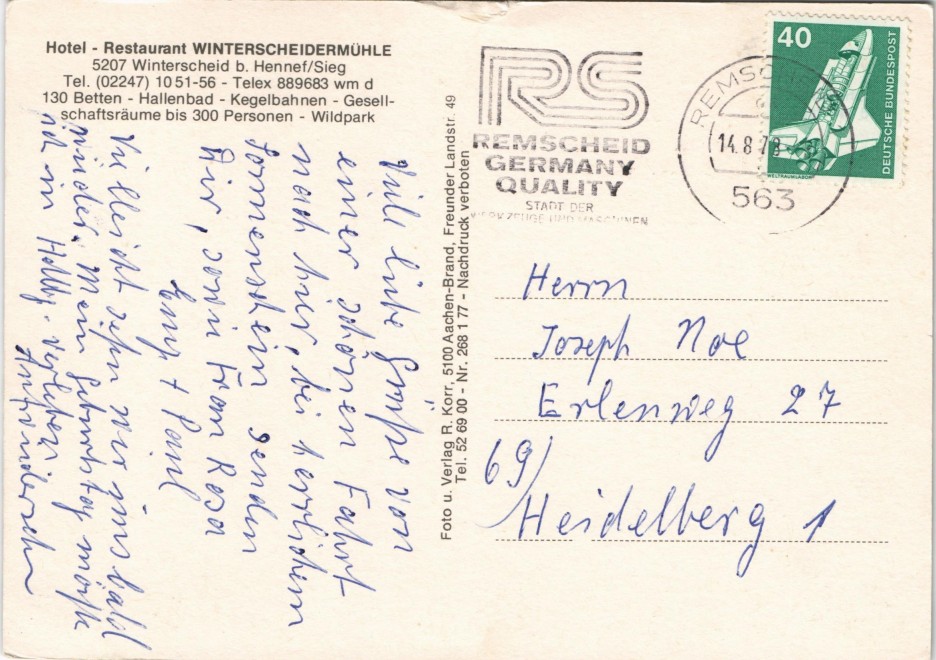 Hotel - Restaurant WINTERSCHEIDERMÜHLE
5207 Winterscheid b. Hennef/Sieg
Tel. (02247) 10 51-56 - Telex 889683 wm d
130 Betten - Hallenbad - Kegelbahnen - Gesell-
schaftsräume bis 300 Personen - Wildpark
Viele liebe Grüße von
einer schönen Fahrt
nach hier, bei herrlichem
Sonnenschein senden
Dir, sowie Frau Rosa
+ Paul
Vielleicht sehn wir uns bald
wieder. Mein Geburtstag möchte
ich in
Aufwiedersehn
Foto u. Verlag R. Korr, 5100 Aachen-Brand, Freunder Landstr. 49
Tel. 52 69 00 - Nr. 268 1 77 - Nachdruck verboten
RS
REMSCHEID
GERMANY
QUALITY
STADT DER
WERKZEUGE UND MASCHINEN
REMSCHEID
14.8.7
563
40
DEUTSCHE BUNDESPOST
Herrn
Joseph Noe
Erlenweg 27
69/
Heidelberg 1